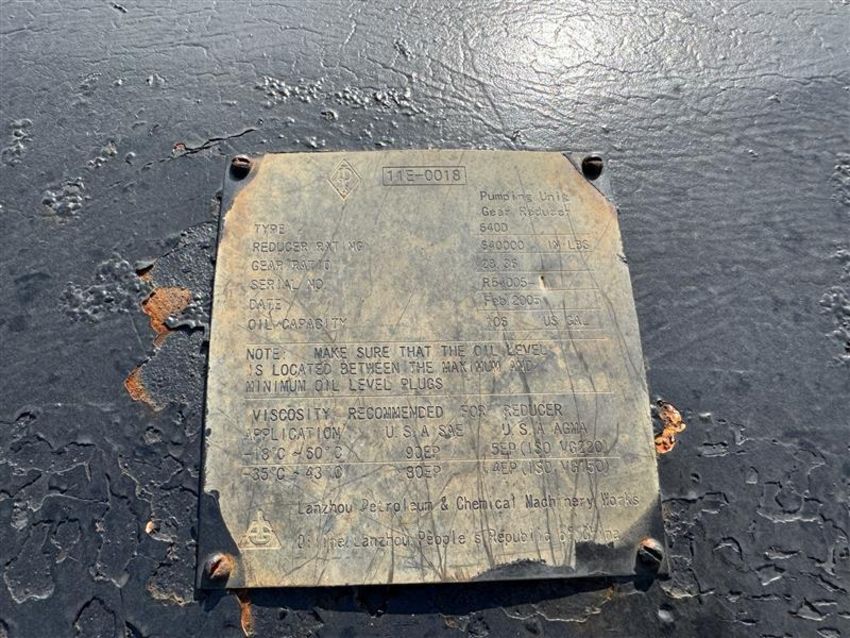 11E-0018
Pumping Unit
Gear Reducer
TYPE 640D
REDUCER RATING 640000 IN LBS
GEAR RATIO
SERIAL NO.
DATE Feb, 2005
OIL CAPACITY 105 US GAL
NOTE: MAKE SURE THAT THE OIL LEVEL
IS LOCATED BETWEEN THE MAXIMUM AND
MINIMUM OIL LEVEL PLUGS
VISCOSITY RECOMMENDED FOR REDUCER
APPLICATION U.S.A SAE U.S.A AGMA
-18°C ~ 60°C 90EP 5EP (ISO VG220)
-35°C ~ 43°C 80EP 4EP (ISO VG150)
Lanzhou Petroleum & Chemical Machinery Works
Lanzhou People's Republic of China